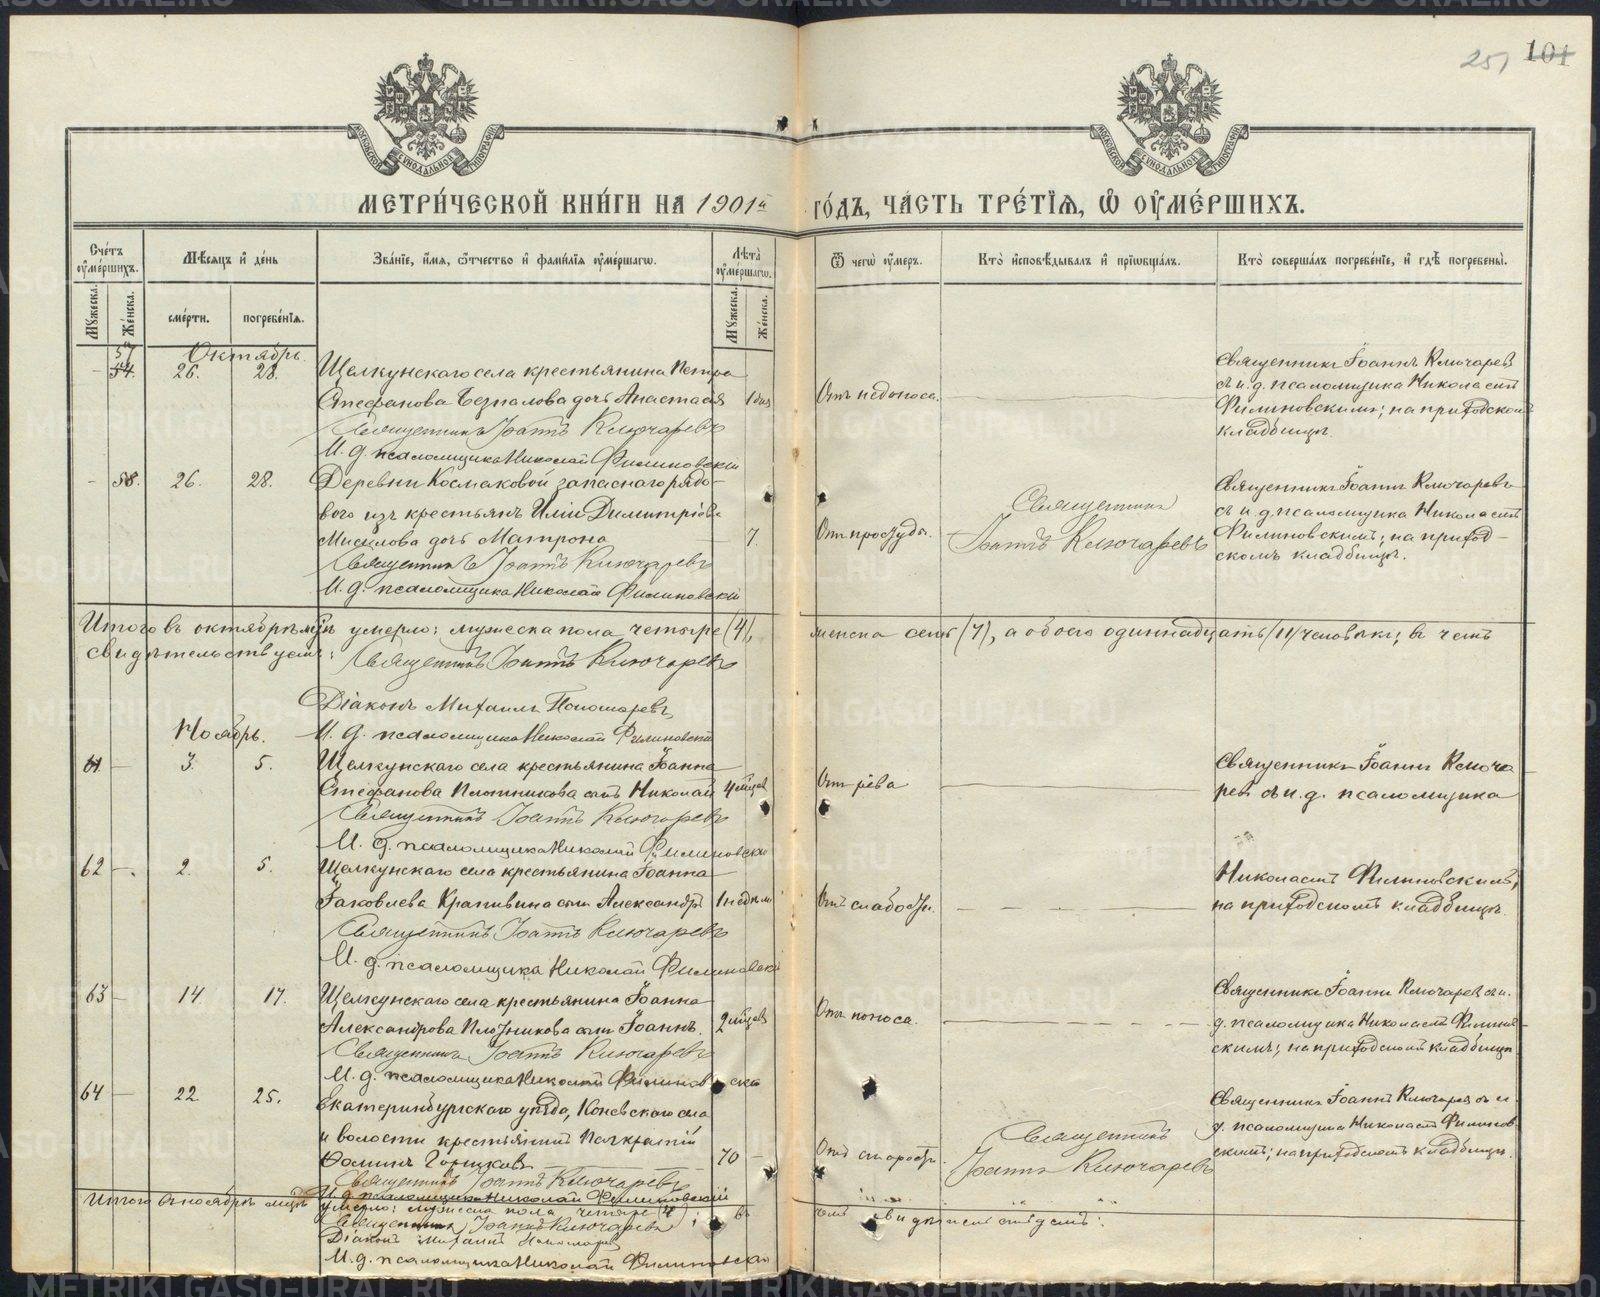 251 101
МЕТРИ́ЧЕСКОЙ КНИ́ГИ НА 1901й го́дъ, ча́сть тре́тїѧ, ѽ оу҆ме́ршихъ.
Сче́тъ оу҆ме́ршихъ.
Мѣ́сѧцъ и҆ де́нь
Зва́нїе, и҆́мѧ, ѻ҆́тчество и҆ фами́лїѧ оу҆ме́ршагѡ.
Лѣ́та оу҆ме́ршагѡ.
Ѿ чегѡ̀ оу҆́меръ.
Кто̀ и҆сповѣ́дывалъ и҆ прїѡбща́лъ.
Кто̀ соверша́лъ погребе́нїе, и҆ гдѣ̀ погребены̀.
Мꙋ́жеска.
Же́нска.
сме́рти.
погребе́нїѧ.
Мꙋ́жеска.
Же́нска.
Октябрь.
57
— 54. 26. 28. Щелкунскаго села крестьянина Петра
Стефанова Безпалова дочь Анастасія 1 дня Отъ недоноса.
Священникъ Іоаннъ Ключаревъ
И. д. псаломщика Николай Филиновскій
Священникъ Іоаннъ Ключаревъ
съ и. д. псаломщика Николаемъ
Филиновскимъ; на приходскомъ
кладбищѣ.
— 58. 26. 28. Деревни Космаковой запаснаго рядо-
вого изъ крестьянъ Иліи Димитріева
Мисилова дочь Матрона 7. Отъ простуды.
Священникъ Іоаннъ Ключаревъ
И. д. псаломщика Николай Филиновскій
Священникъ
Іоаннъ Ключаревъ
Священникъ Іоаннъ Ключаревъ
съ и. д. псаломщика Николаемъ
Филиновскимъ; на приход-
скомъ кладбищѣ.
Итого въ октябрѣ м̃цѣ умерло: мужеска пола четыре (4), женска семь (7), а обоего одиннадцать (11) человѣкъ; въ чемъ
свидѣтельствуемъ:
Священникъ Іоаннъ Ключаревъ
Діаконъ Михаилъ Пономаревъ
И. д. псаломщика Николай Филиновскій
Ноябрь.
61. — 3. 5. Щелкунскаго села крестьянина Іоанна
Стефанова Плотникова сынъ Николай 4 мѣсцев Отъ рева
Священникъ Іоаннъ Ключаревъ
И. д. псаломщика Николай Филиновскій
Священникъ Іоаннъ Ключа
ревъ съ и. д. псаломщика
62 —. 2. 5. Щелкунскаго села крестьянина Іоанна
Іаковлева Крапивина сынъ Александръ 1 недѣли Отъ слабости.
Священникъ Іоаннъ Ключаревъ
И. д. псаломщика Николай Филиновскій
Николаемъ Филиновскимъ;
на приходскомъ кладбищѣ.
63 — 14. 17. Щелкунскаго села крестьянина Іоанна
Александрова Плотникова сынъ Іоаннъ. 2 мѣсцев Отъ поноса.
Священникъ Іоаннъ Ключаревъ
И. д. псаломщика Николай Филиновскій
Священникъ Іоаннъ Ключаревъ съ и.
д. псаломщика Николаемъ Филинов-
скимъ; на приходскомъ кладбищѣ
64 — 22 25. Екатеринбургскаго уѣзда, Коневского села
и волости крестьянинъ Панкратій
Ѳоминъ 70 — Отъ старости.
Священникъ Іоаннъ Ключаревъ
И. д. псаломщика Николай Филиновскій
Священникъ
Іоаннъ Ключаревъ
Священникъ Іоаннъ Ключаревъ съ и.
д. псаломщика Николаемъ Филинов-
скимъ; на приходскомъ кладбищѣ.
Итого въ ноябрѣ мѣсцѣ умерло: мужеска пола четыре (4); въ чемъ свидѣтельствуемъ:
Священникъ Іоаннъ Ключаревъ
Діаконъ Михаилъ Пономаревъ
И. д. псаломщика Николай Филиновскій